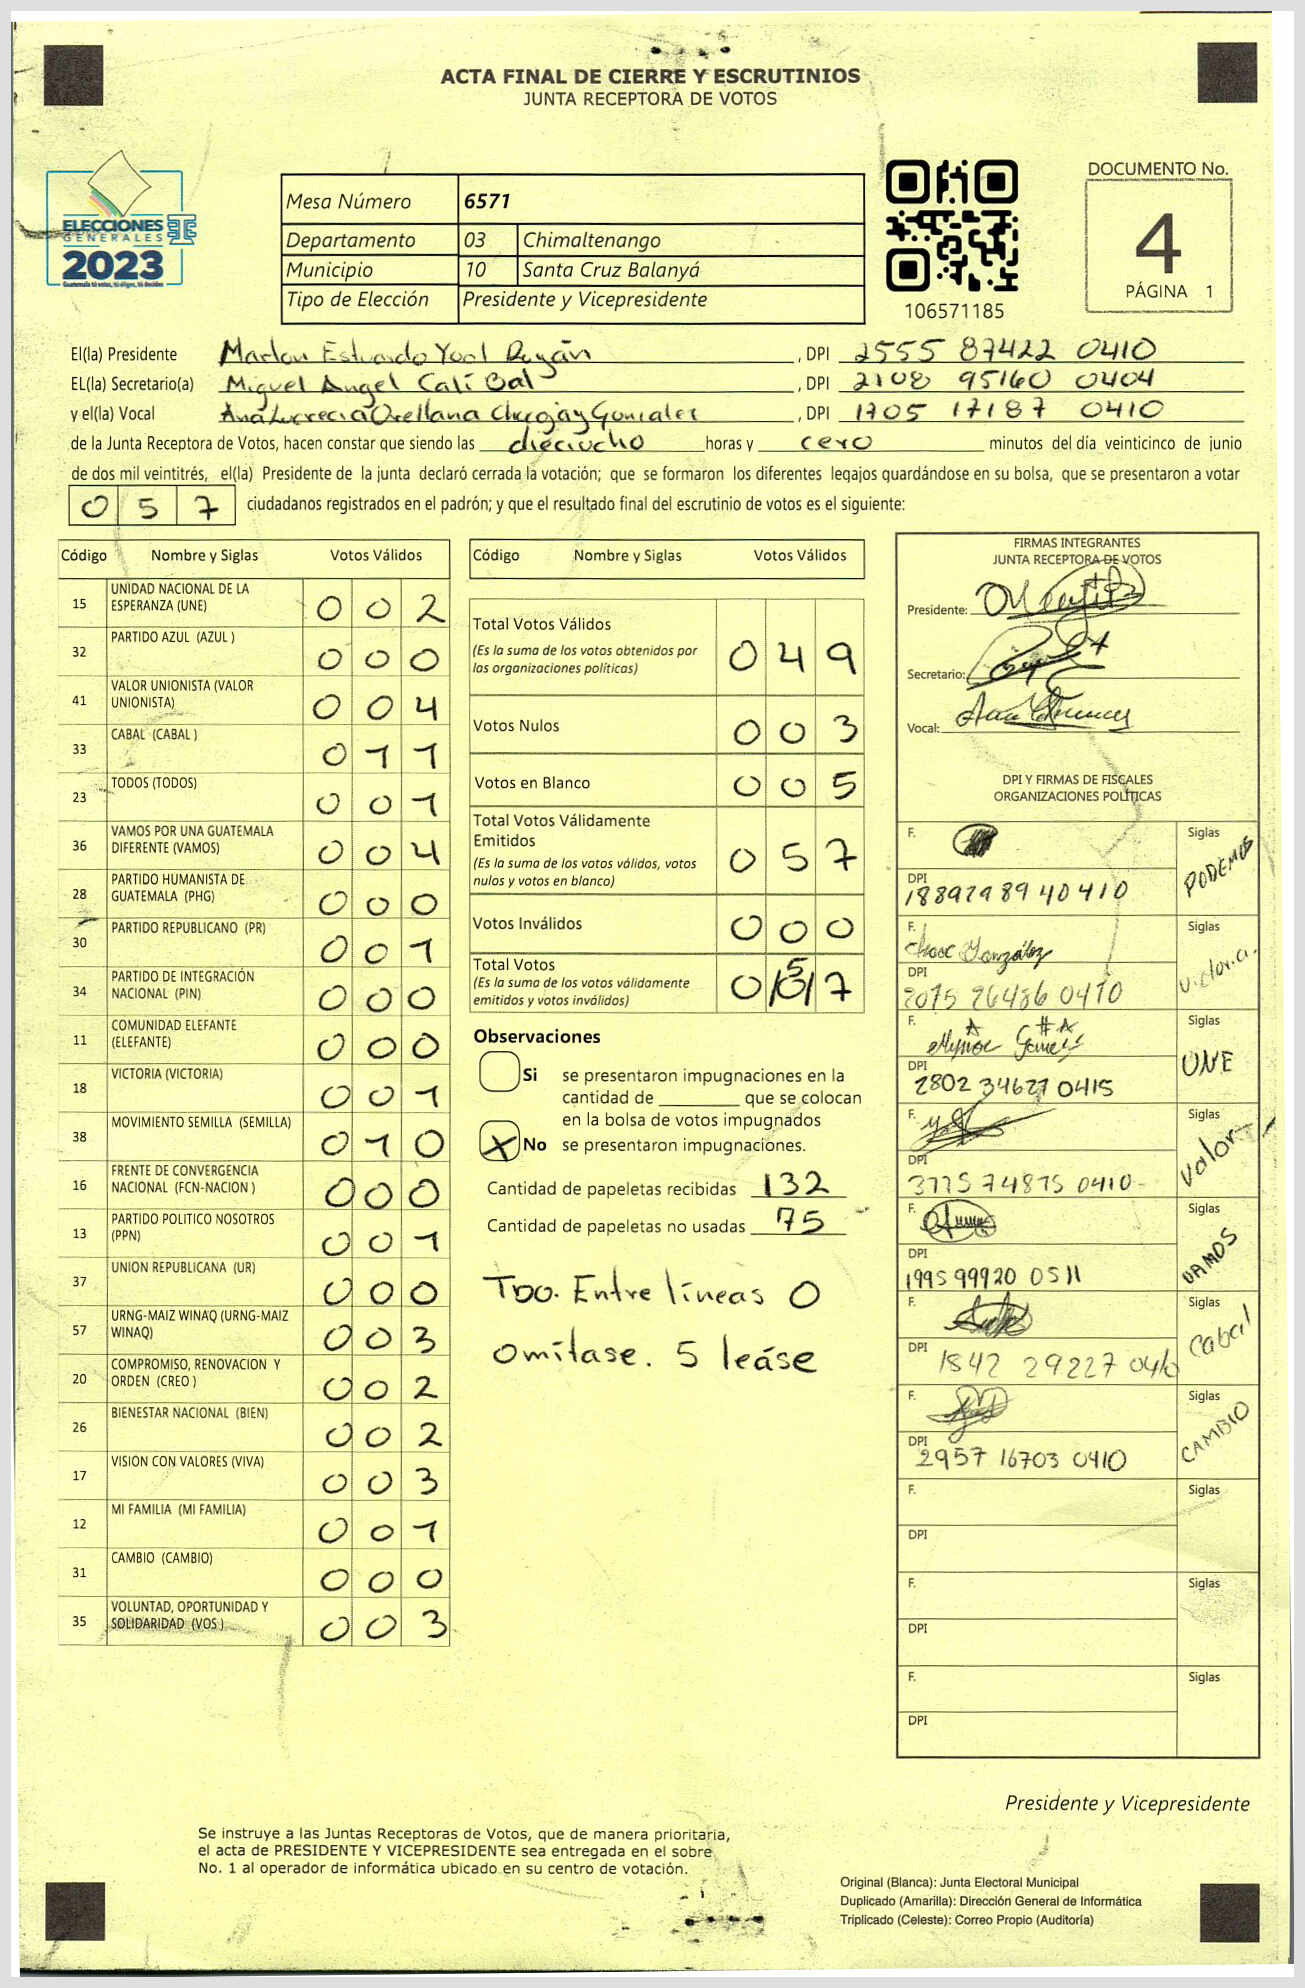 ACTA FINAL DE CIERRE Y ESCRUTINIOS
JUNTA RECEPTORA DE VOTOS
ELECCIONES
GENERALES
2023
Mesa Número 6571
Departamento 03 Chimaltenango
Municipio 10 Santa Cruz Balanyá
Tipo de Elección Presidente y Vicepresidente
106571185
DOCUMENTO No.
4
PÁGINA 1
El(la) Presidente Marlon Estuardo Yool , DPI 2555 87422 0410
EL(la) Secretario(a) Miguel Angel Calí Bal , DPI 2108 95160 0404
y el(la) Vocal Ana Lucrecia Orellana Chergay Gonzales , DPI 1705 17187 0410
de la Junta Receptora de Votos, hacen constar que siendo las dieciocho horas y cero minutos del día veinticinco de junio
de dos mil veintitrés, el(la) Presidente de la junta declaró cerrada la votación; que se formaron los diferentes legajos guardándose en su bolsa, que se presentaron a votar
057 ciudadanos registrados en el padrón; y que el resultado final del escrutinio de votos es el siguiente:
Código Nombre y Siglas Votos Válidos
15 UNIDAD NACIONAL DE LA ESPERANZA (UNE) 002
32 PARTIDO AZUL (AZUL ) 000
41 VALOR UNIONISTA (VALOR UNIONISTA) 004
33 CABAL (CABAL ) 011
23 TODOS (TODOS) 001
36 VAMOS POR UNA GUATEMALA DIFERENTE (VAMOS) 004
28 PARTIDO HUMANISTA DE GUATEMALA (PHG) 000
30 PARTIDO REPUBLICANO (PR) 001
34 PARTIDO DE INTEGRACIÓN NACIONAL (PIN) 000
11 COMUNIDAD ELEFANTE (ELEFANTE) 000
18 VICTORIA (VICTORIA) 001
38 MOVIMIENTO SEMILLA (SEMILLA) 010
16 FRENTE DE CONVERGENCIA NACIONAL (FCN-NACION ) 000
13 PARTIDO POLITICO NOSOTROS (PPN) 001
37 UNION REPUBLICANA (UR) 000
57 URNG-MAIZ WINAQ (URNG-MAIZ WINAQ) 003
20 COMPROMISO, RENOVACION Y ORDEN (CREO ) 002
26 BIENESTAR NACIONAL (BIEN) 002
17 VISION CON VALORES (VIVA) 003
12 MI FAMILIA (MI FAMILIA) 001
31 CAMBIO (CAMBIO) 000
35 VOLUNTAD, OPORTUNIDAD Y SOLIDARIDAD (VOS ) 003
Código Nombre y Siglas Votos Válidos
Total Votos Válidos 049
(Es la suma de los votos obtenidos por
las organizaciones políticas)
Votos Nulos 003
Votos en Blanco 005
Total Votos Válidamente
Emitidos 057
(Es la suma de los votos válidos, votos
nulos y votos en blanco)
Votos Inválidos 000
Total Votos 0 5 /0/ 7
(Es la suma de los votos válidamente
emitidos y votos inválidos)
Observaciones
Si se presentaron impugnaciones en la
cantidad de ________ que se colocan
en la bolsa de votos impugnados
X No se presentaron impugnaciones.
Cantidad de papeletas recibidas 132
Cantidad de papeletas no usadas 75
Tdo. Entre líneas 0
omítase. 5 leáse
FIRMAS INTEGRANTES
JUNTA RECEPTORA DE VOTOS
Presidente:
Secretario:
Vocal:
DPI Y FIRMAS DE FISCALES
ORGANIZACIONES POLÍTICAS
F. Siglas PODEMOS
DPI 188929894 0410
F. Siglas
DPI 2075 26486 0410
F. Siglas UNE
DPI 2802 34627 0415
F. Siglas Valor
DPI 3775 74875 0410
F. Siglas VAMOS
DPI 1995 99920 0511
F. Siglas Cabal
DPI 1842 29227 0410
F. Siglas CAMBIO
DPI 2957 16703 0410
F. Siglas
DPI
F. Siglas
DPI
F. Siglas
DPI
Presidente y Vicepresidente
Se instruye a las Juntas Receptoras de Votos, que de manera prioritaria,
el acta de PRESIDENTE Y VICEPRESIDENTE sea entregada en el sobre
No. 1 al operador de informática ubicado en su centro de votación.
Original (Blanca): Junta Electoral Municipal
Duplicado (Amarilla): Dirección General de Informática
Triplicado (Celeste): Correo Propio (Auditoría)